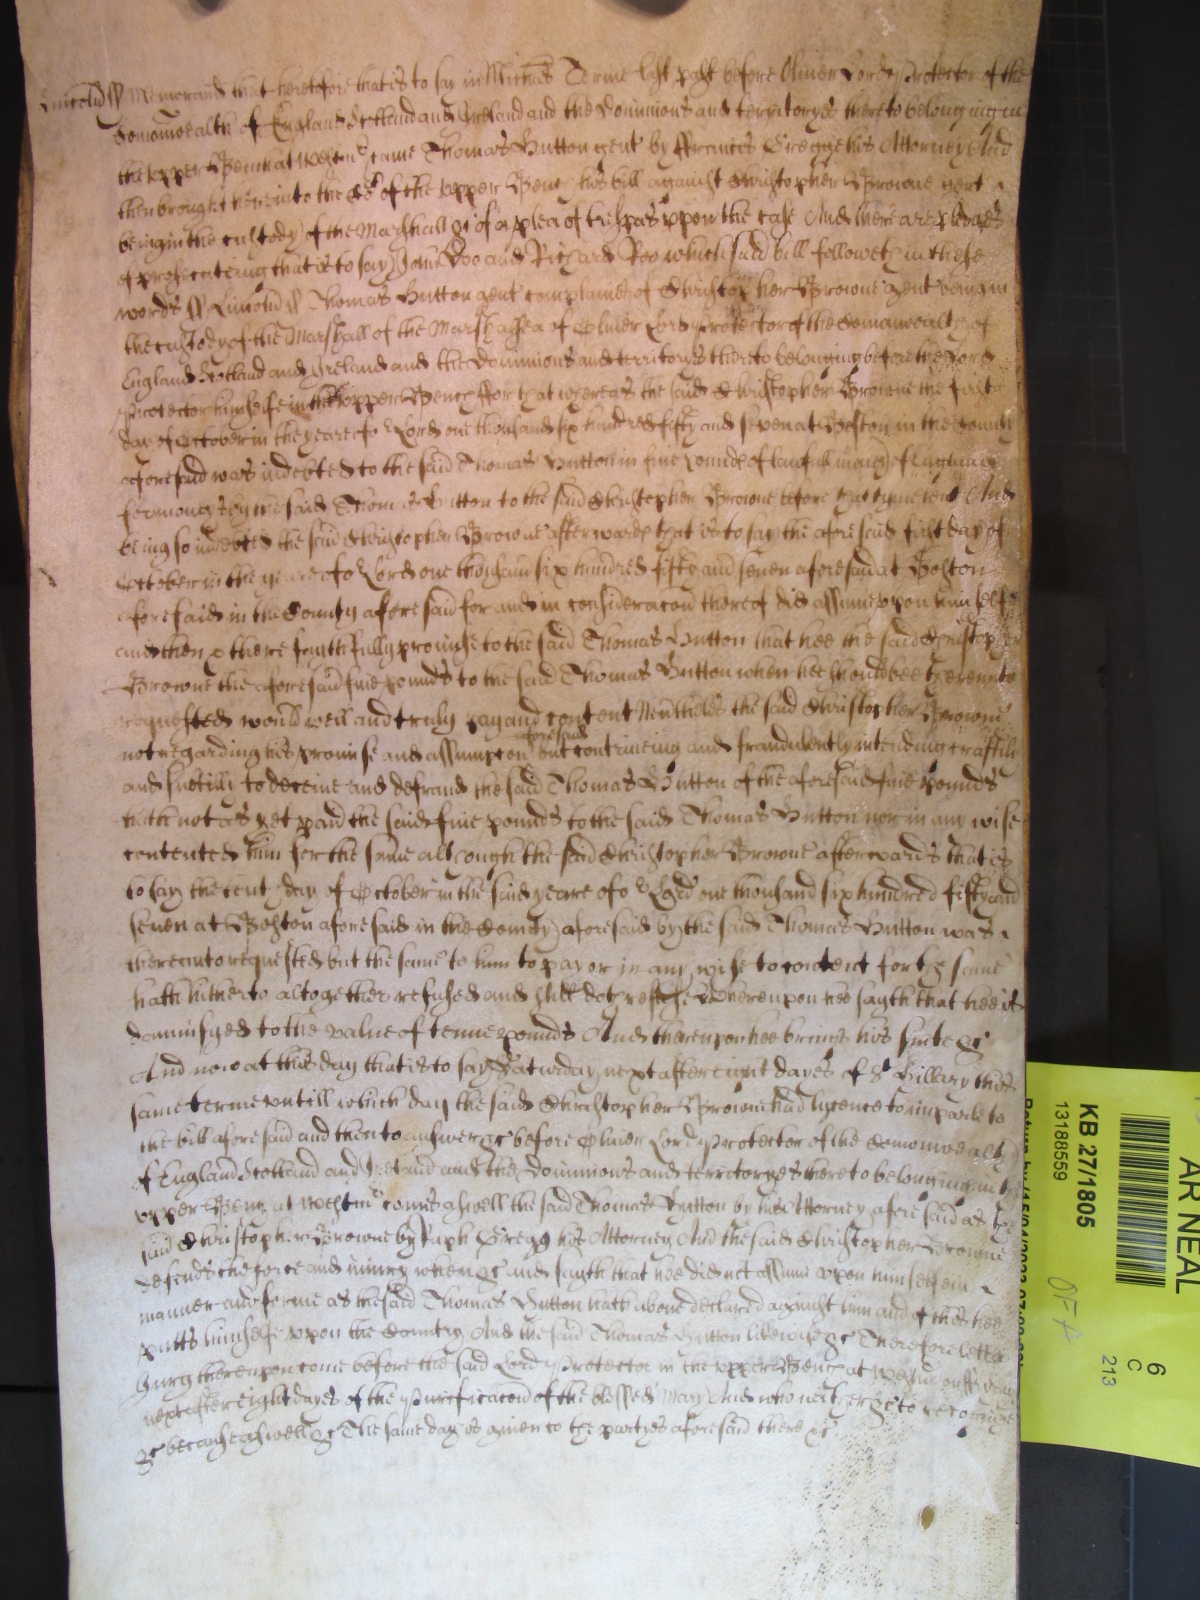 Lincoln ss Memorand that heretofore that is to say in Michas Terme last past before Oliver Lord Protector of the
Comonwealth of England Scotland and Ireland and the Dominions and territoryes thereto belonging in
the upper Bench at Westmr came Thomas Hutton gent by Frances Gregge his Attorney And
then brought here into the Ct of the upper Bench his bill against Christopher Browne gent
being in the custody of the Marshall &c of a plea of trespas upon the case And there are pledges
of prosecuteing that is to say John Doo and Richard Roo which said bill followeth in these
words ss Lincoln ss Thomas Hutton gent complaines of Christopher Browne gent being in
the custody of the Marshall of the Marshalsea of Oliver Lord Protector of the Comonwealth of
England Scotland and Ireland and the Dominions and territorys thereto belonging before the Lord
Protector himselfe in the upper Bench ffor that whereas the said Christopher Browne the first
day of October in the yeare of or Lord one thousand six hundred fifty and seven at Boston in the County
aforesaid was indebted to the said Thomas Hutton in five pounds of lawfull money of England
for monys by the said Thomas Hutton to the said Christopher Browne before that tyme lent And
being so indebted the said Christopher Browne afterwards that is to say the aforesaid first day of
October in the yeare of or Lord one thousand six hundred fifty and seven aforesaid at Boston
aforesaid in the County aforesaid for and in consideracon thereof did assume upon himselfe
and then & there faythfully promise to the said Thomas Hutton that hee the said Christopher
Browne the aforesaid five pounds to the said Thomas Hutton when hee should bee thereunto
requested would well and truly pay and content Nevtheles the said Christopher Browne
not regarding his promise and assumpcon aforesaid but contriveing and fraudulently intending craftily
and subtilly to deceive and defraud the said Thomas Hutton of the aforesaid five pounds
hath not as yet paid the said five pounds to the said Thomas Hutton nor in any wise
contented him for the same although the said Christopher Browne afterwards that is
to say the tenth day of October in the said yeare of or Lord one thousand six hundred fifty and
seven at Boston aforesaid in the County aforesaid by the said Thomas Hutton was
thereunto requested but the same to him to pay or in any wise to content for the same
hath hitherto altogether refused and still doth refuse Whereupon hee sayth that hee is
damnifyed to the value of tenne pounds And thereupon hee brings his suite &c
And now at this day that is to say Saturday next after eight dayes of St Hillary this
same terme untill which day the said Christopher Browne had lycence to imparle to
the bill aforesaid and then to answer &c before Oliver Lord Protector of the Comonwealth
of England Scotland and Ireland and the Dominions and territoryes thereto belonging in the
upper Bench at Westmr comes aswell the said Thomas Hutton by his Attorney aforesaid as the
said Christopher Browne by Raph Gregg his Attorney And the said Christopher Browne
defends the force and iniury when &c and sayth that hee did not assume upon himselfe in
manner and forme as the said Thomas Hutton hath above declared against him and of this hee
putts himselfe upon the Country And the said Thomas Hutton likewise &c Therefore lett a
Jury thereupon come before the said Lord Protector in the upper Bench at Westmr on
next after eight dayes of the Purificacon of the blessed Mary And who neither &c to recognize
&c because aswell &c The same day is given to the partyes aforesaid there &c
AR NEAL
KB 27/1805
13188559
6
C
213